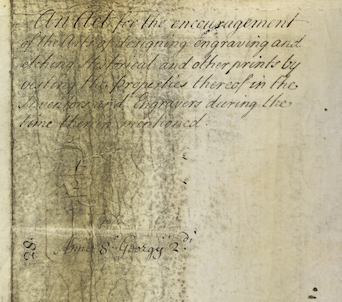 An Act for the encouragement
of the Arts of designing engraving and
etching historical and other prints by
vesting the properties thereof in the
Inventors and Engravers during the
time therein mentioned.
Anno 8.º Georgij 2.di
28